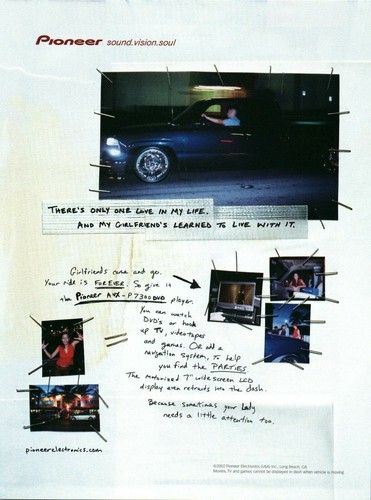 Pioneer sound.vision.soul
THERE'S ONLY ONE LOVE IN MY LIFE.
AND MY GIRLFRIEND'S LEARNED TO LIVE WITH IT.
Girlfriends come and go.
Your ride is FOREVER. So give it
the Pioneer AVX-P7300DVD player.
You can watch
DVD's or hook
up TV, videotapes
and games. Or add a
navigation system, to help
you find the PARTIES.
The motorized 7" widescreen LCD
display even retracts into the dash.
Because sometimes your lady
needs a little attention too.
pioneerelectronics.com
©2002 Pioneer Electronics (USA) Inc., Long Beach, CA.
Movies, TV and games cannot be displayed in dash when vehicle is moving.